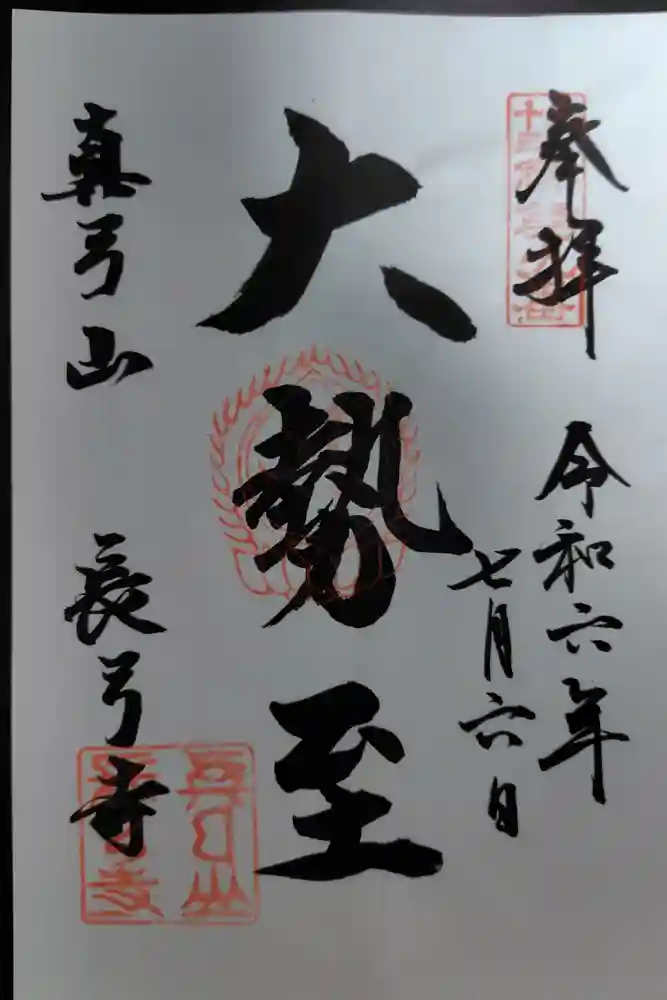 奉拝
令和六年
七月六日
大勢至
真弓山
長弓寺